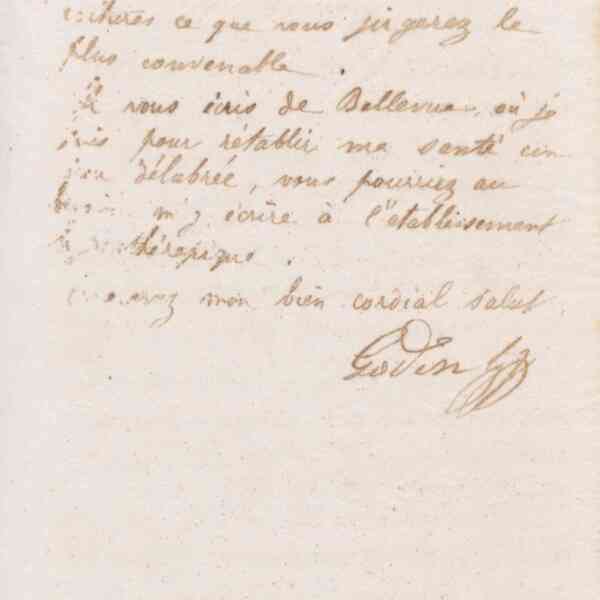 ce que vous jugerez le
plus convenable.
Je vous écris de Bellevue, où je
suis pour rétablir ma santé un
peu délabrée, vous pourriez au
besoin m'y écrire à l'établissement
Recevez mon bien cordial salut
Godin